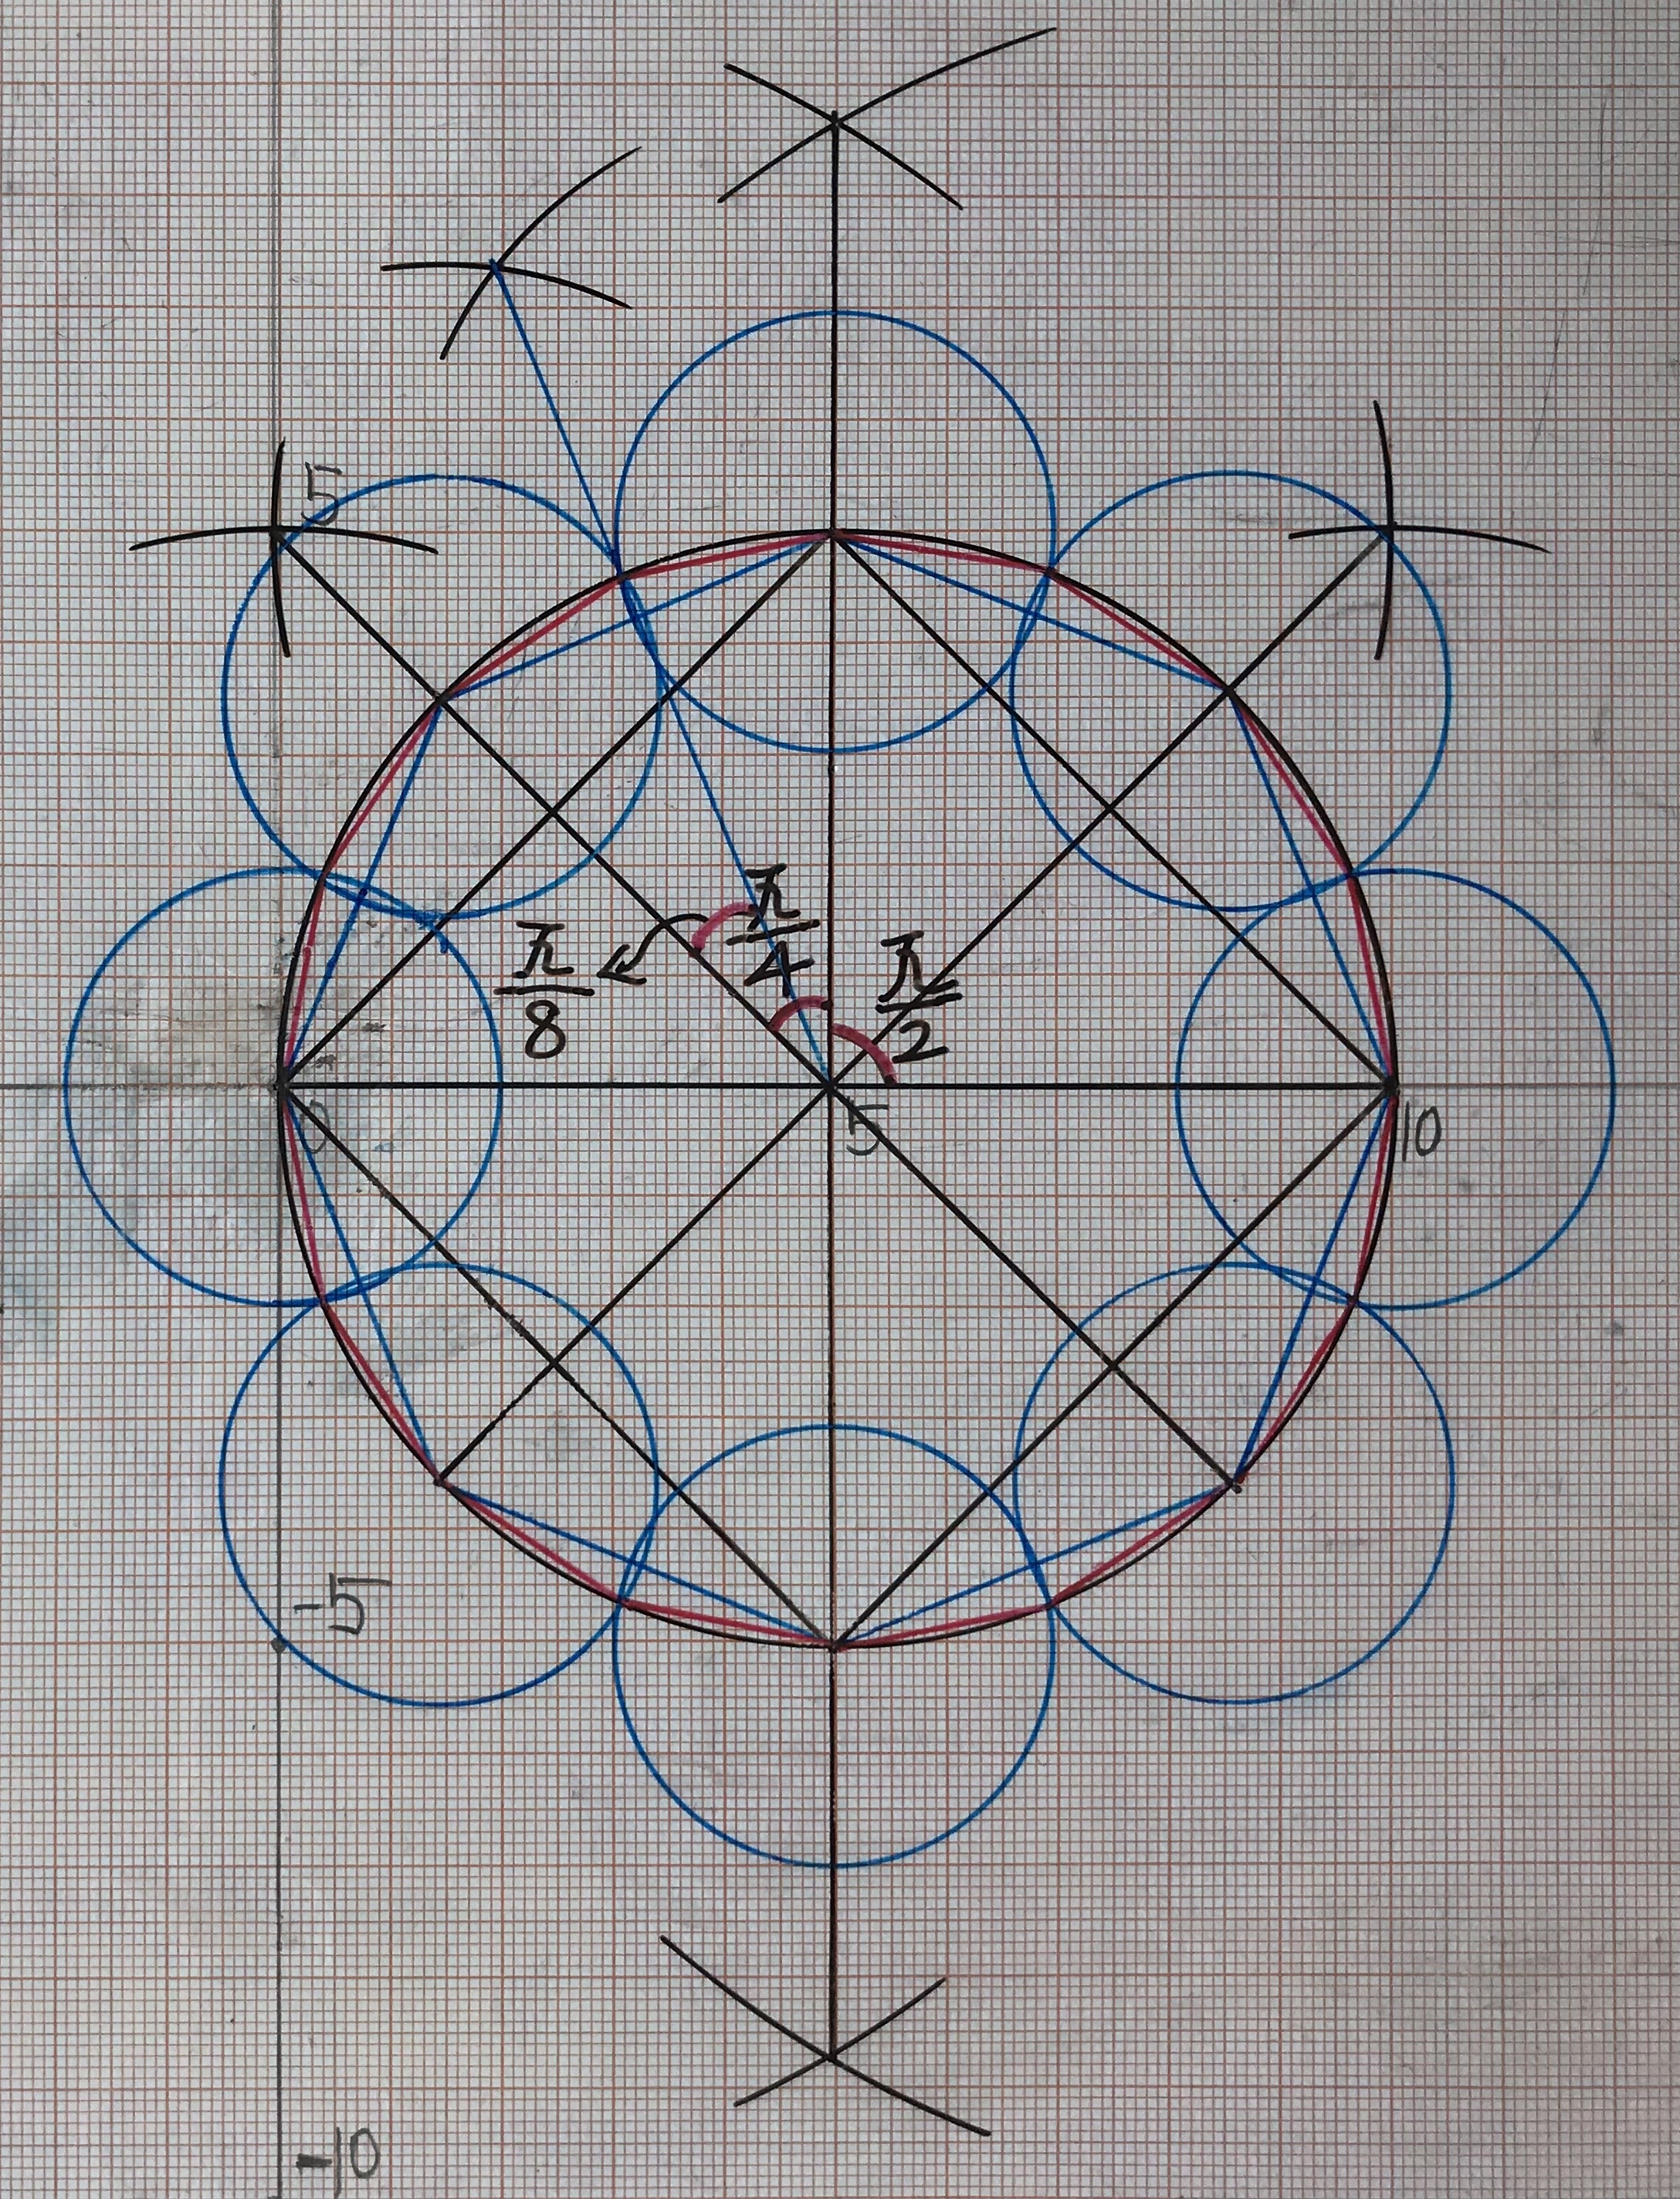 5
π/4
π/8
π/2
0
5
10
-5
-10